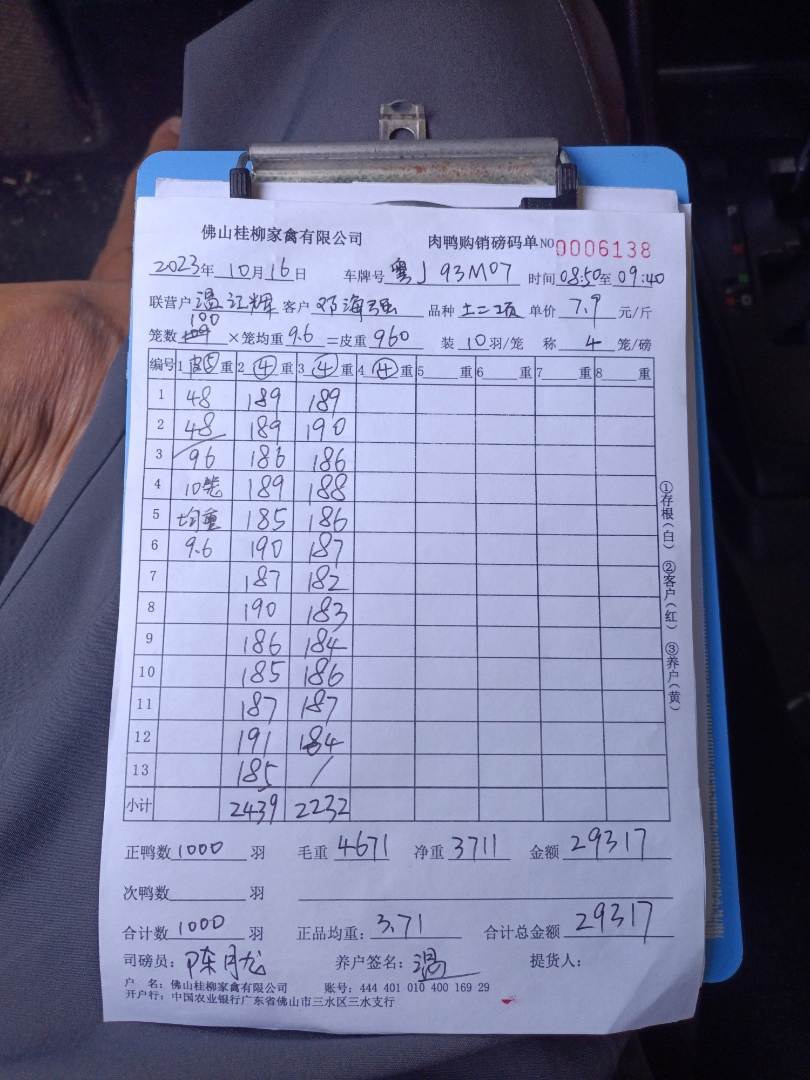 佛山桂柳家禽有限公司 肉鸭购销磅码单 NO 0006138
2023年 10月16日 车牌号 粤J 93M07 时间 08:50至 09:40
联营户 温江辉 客户 邓海强 品种 土二项 单价 7.9 元/斤
100
笼数 ×笼均重 9.6 =皮重 960 装 10 羽/笼 称 4 笼/磅
编号 1 皮⑤ 重 2 ④ 重 3 ④ 重 4 ④ 重 5 重 6 重 7 重 8 重
1 48 189 189
2 48 189 190
3 96 186 186
4 10笼 189 188
5 均重 185 186
6 9.6 190 187
7 187 182
8 190 183
9 186 184
10 185 186
11 187 187
12 191 184
13 185 /
小计 2439 2232
①存根(白) ②客户(红) ③养户(黄)
正鸭数 1000 羽 毛重 4671 净重 3711 金额 29317
次鸭数 羽
合计数 1000 羽 正品均重: 3.71 合计总金额 29317
司磅员: 陈月龙 养户签名: 温 提货人:
户 名: 佛山桂柳家禽有限公司 账号: 444 401 010 400 169 29
开户行: 中国农业银行广东省佛山市三水区三水支行